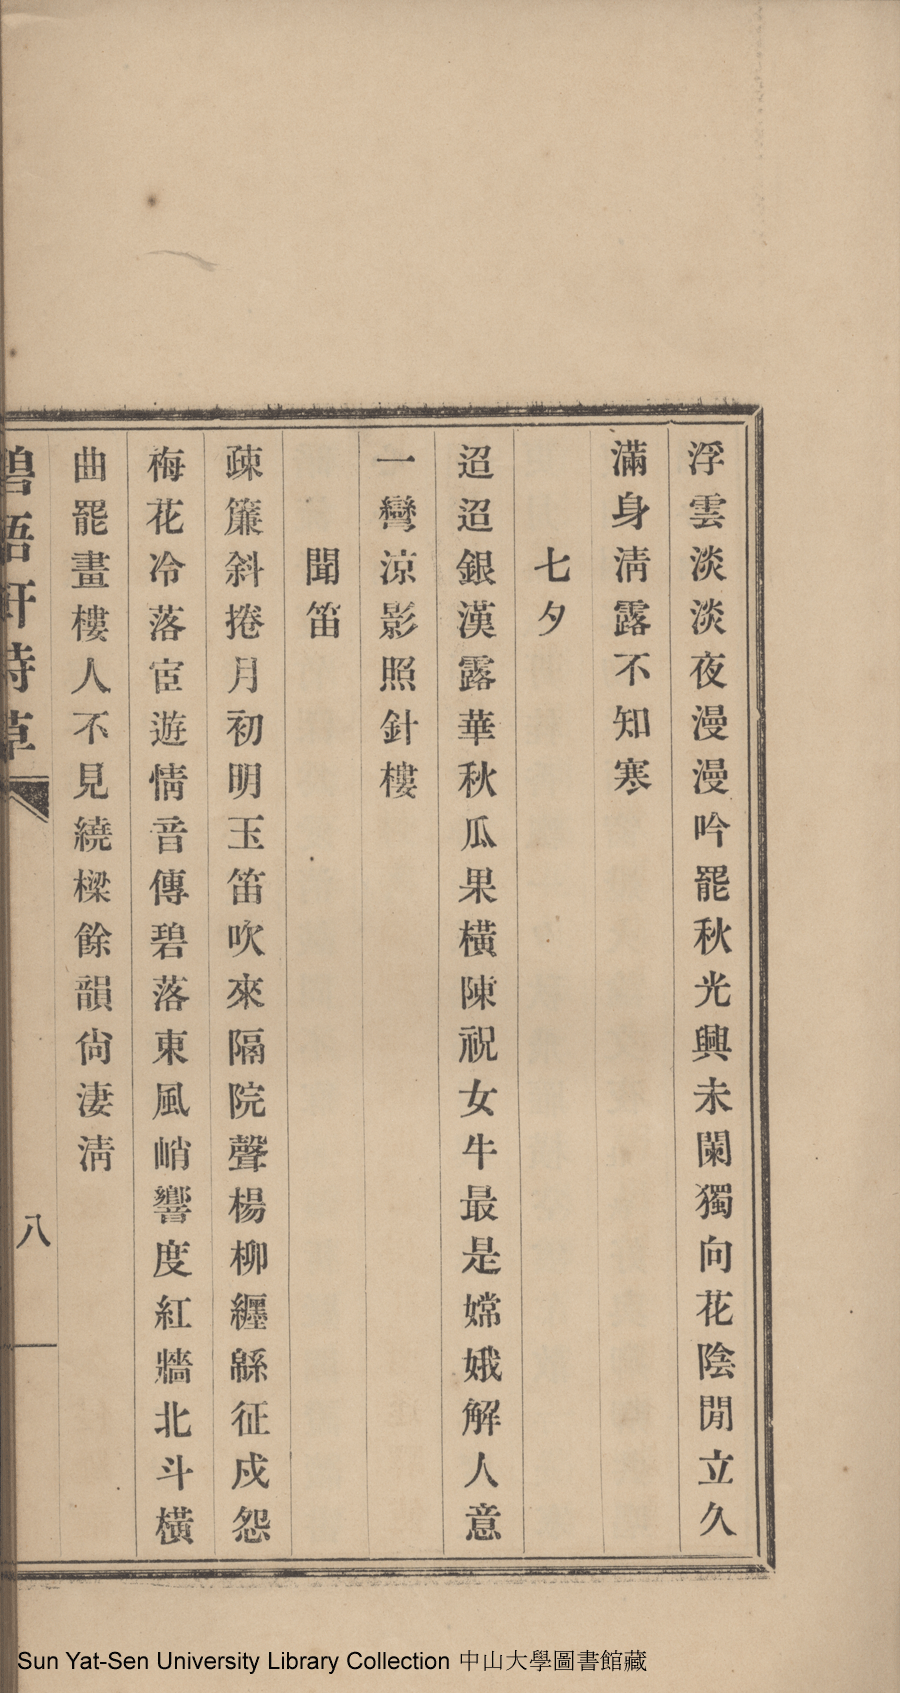 浮雲淡淡夜漫漫吟罷秋光興未闌獨向花陰閒立久
滿身淸露不知寒
七夕
迢迢銀漢露華秋瓜果橫陳祝女牛最是嫦娥解人意
一彎涼影照針樓
聞笛
疎簾斜捲月初明玉笛吹來隔院聲楊柳纒緜征戍怨
梅花冷落宦遊情音傳碧落東風峭響度紅牆北斗橫
曲罷畫樓人不見繞樑餘韻尙淒淸
碧梧軒詩草
八
Sun Yat-Sen University Library Collection 中山大學圖書館藏